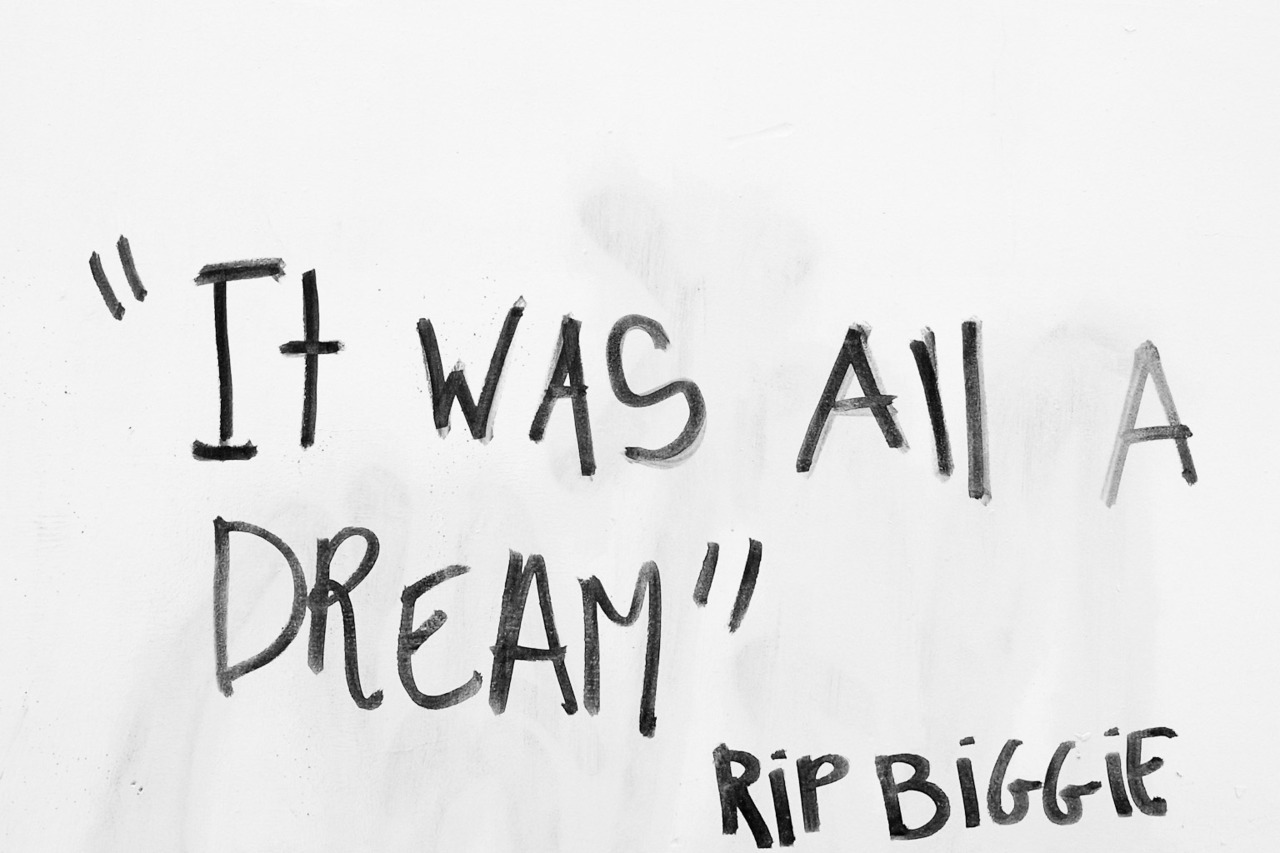 "It WAS All A
DREAM"
RiP BiGGiE